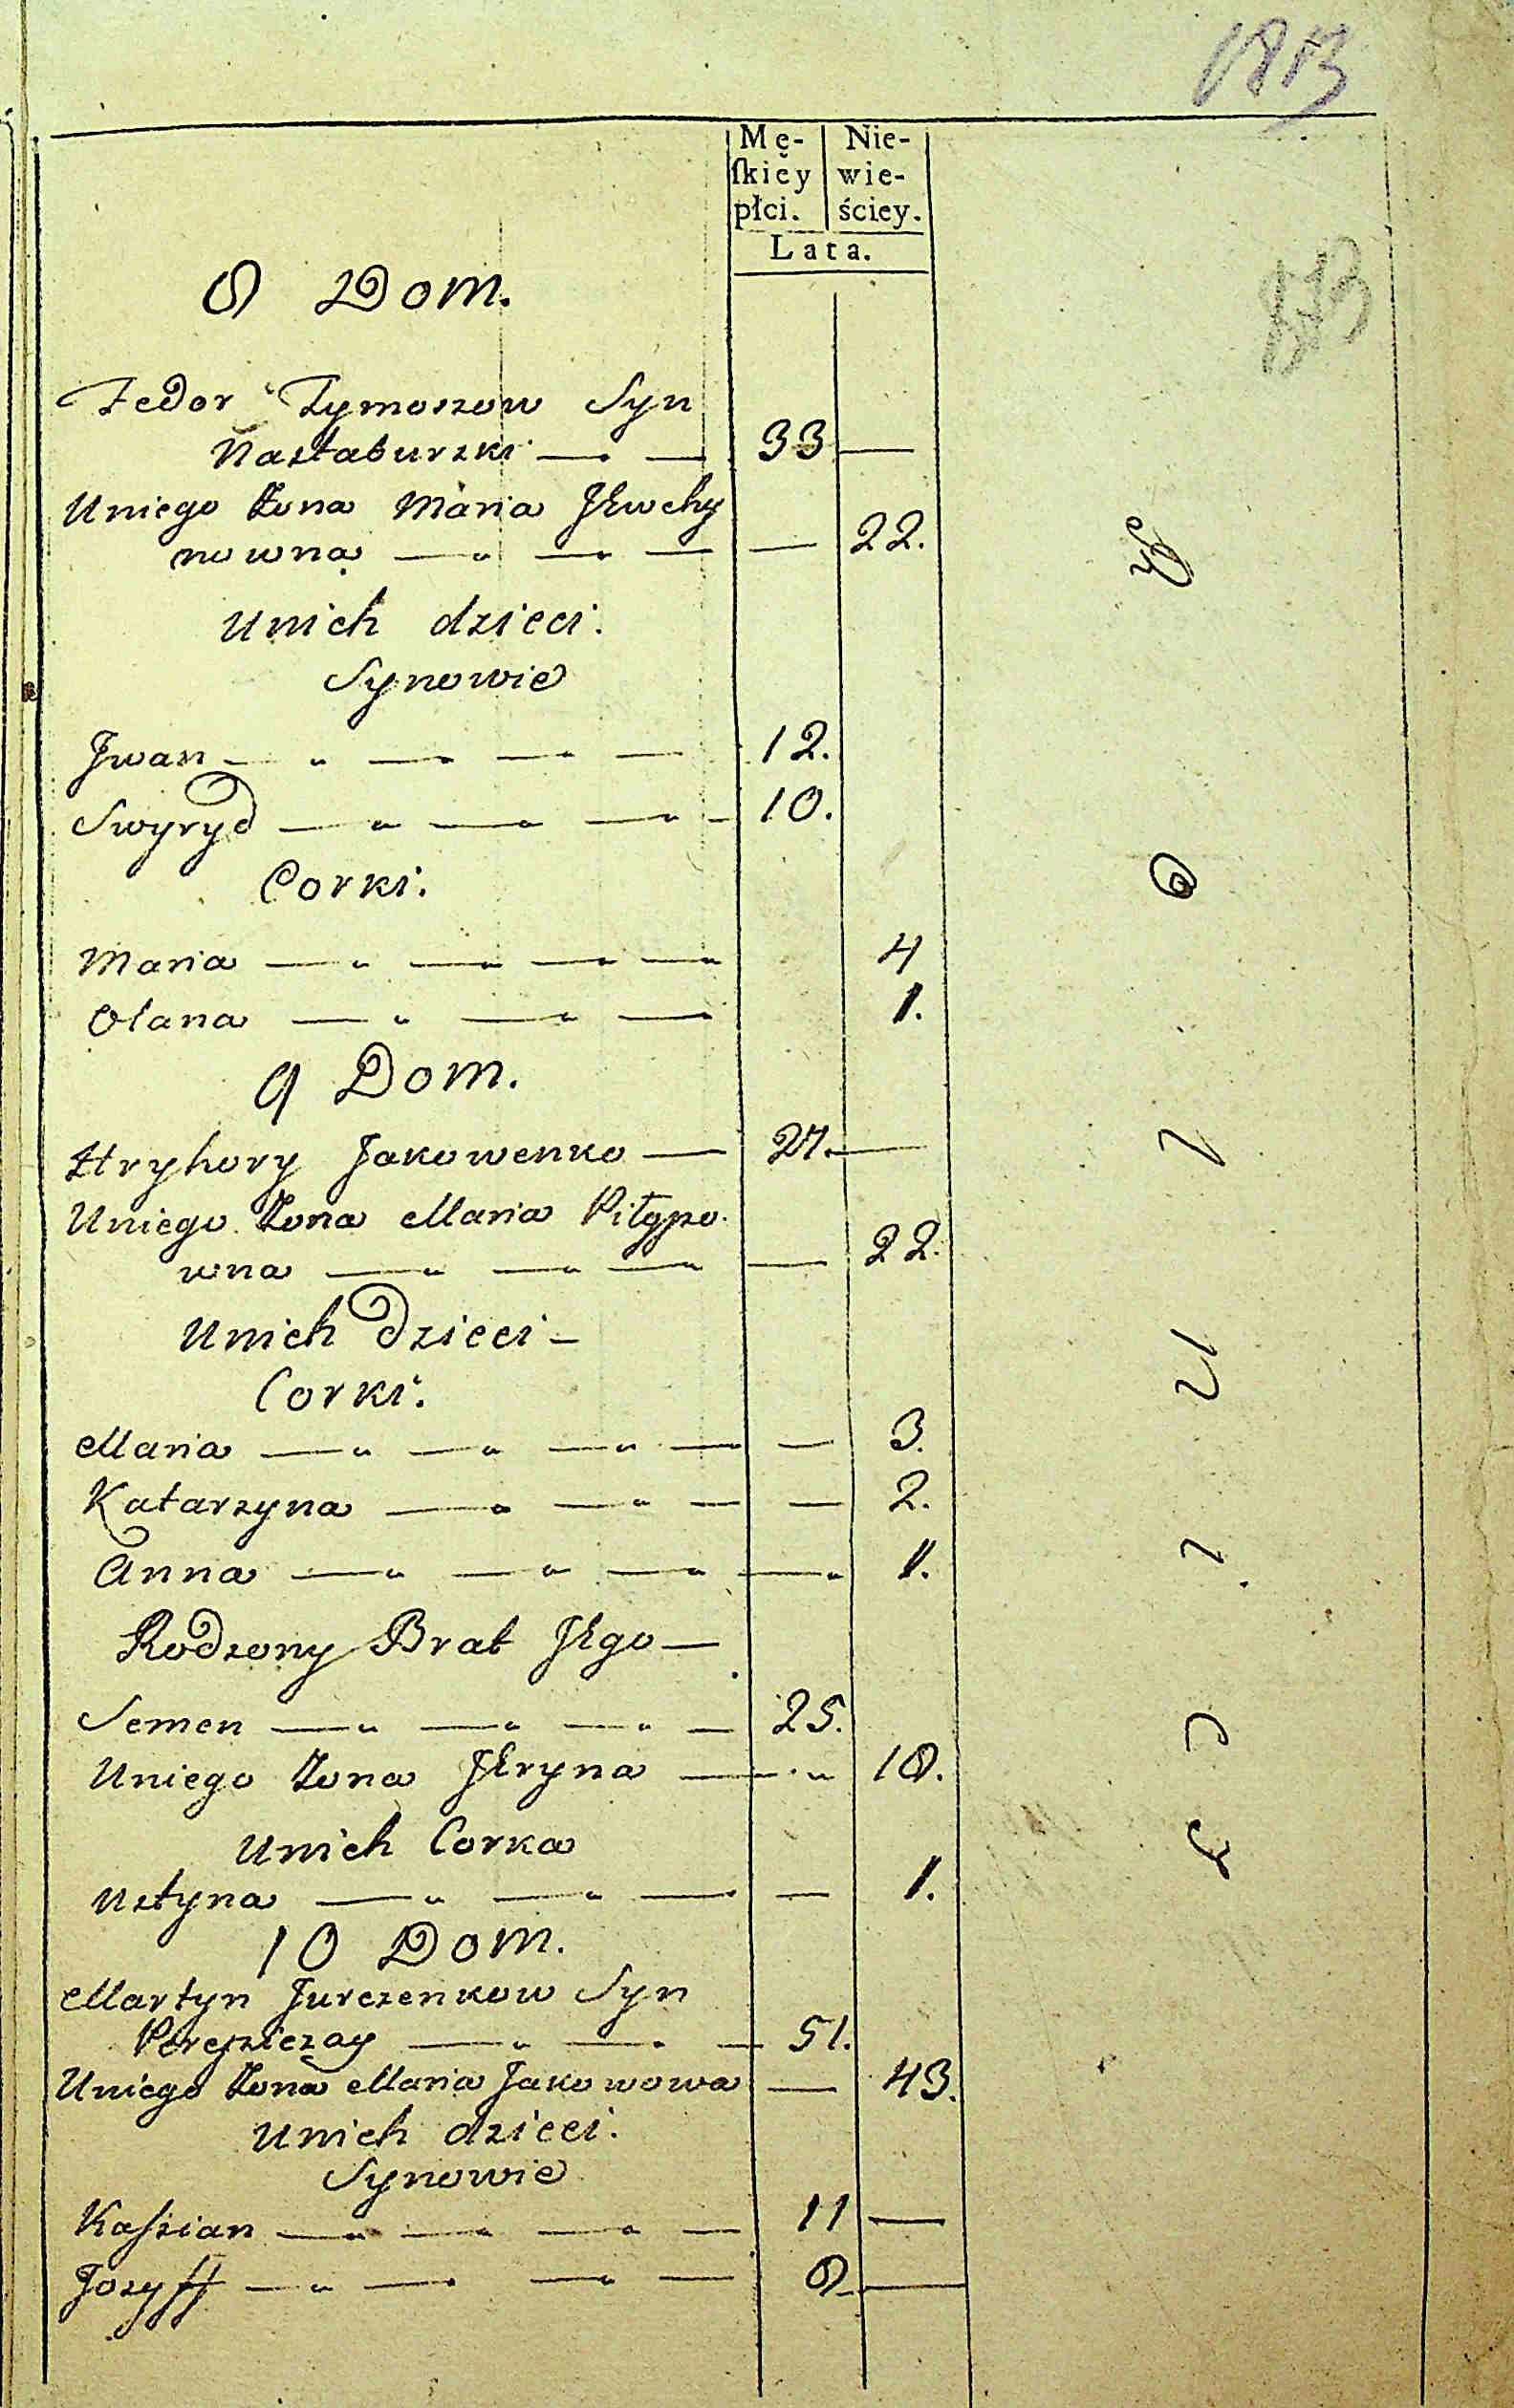 1813
Mę- Nie-
ſkiey wie-
płci. ściey.
Lata.
8 Dom.
Fedor Tymoszow Syn
Nastaburzki 33
Uniego Zona Maria Jewchy
nowna 22.
Unich dzieci.
Synowie
Jwan 12.
Swyryd 10.
Corki.
Maria 4
Olana 1.
9 Dom.
Hryhory Jakowenko 27.
Uniego Zona Maria Pilypo
wna 22.
Unich dzieci
Corki.
Maria 3.
Katarzyna 2.
Anna 1.
Rodzony Brat Jego
Semen 25.
Uniego Zona Jeryna 18.
Unich Corka
Ustyna 1.
10 Dom.
Martyn Jurczenkow Syn
Perepiczay 51.
Uniego Zona Maria Jakowowa 43.
Unich dzieci.
Synowie
Kaſzian 11
Jozyff 8